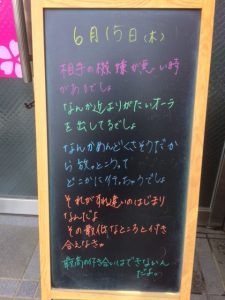 6月15日(木)
相手の機嫌が悪い時
があるでしょ
なんか近よりがたいオーラ
を出してるでしょ
なんかめんどくさそうだか
ら放っところって
どこかに行っちゃうでしょ
それがすれ違いのはじまり
なんだよ
その最低なところと付き
合えなきゃ
最高の付き合いはできないん
だよ。